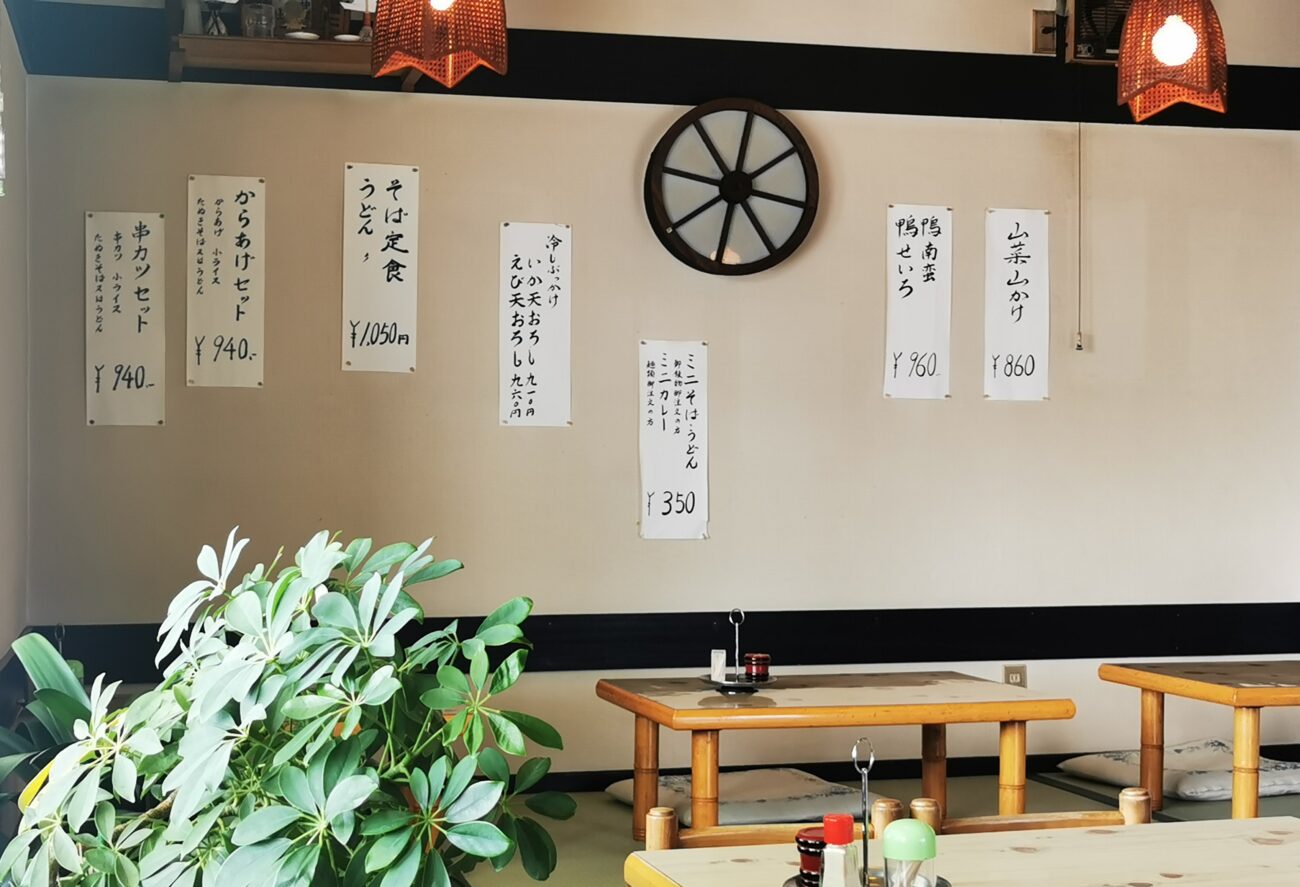 串カツセット
串カツ 小ライス
たぬきそば又はうどん
¥940.-
からあげセット
からあげ 小ライス
たぬきそば又はうどん
¥940.-
そば定食
うどん 〃
¥1,050円
冷しぶっかけ
いか天おろし 九一〇円
えび天おろし 九六〇円
ミニそば・うどん
御飯物御注文の方
ミニカレー
麺類御注文の方
¥350
鴨南蛮
鴨せいろ
¥960
山菜山かけ
¥860